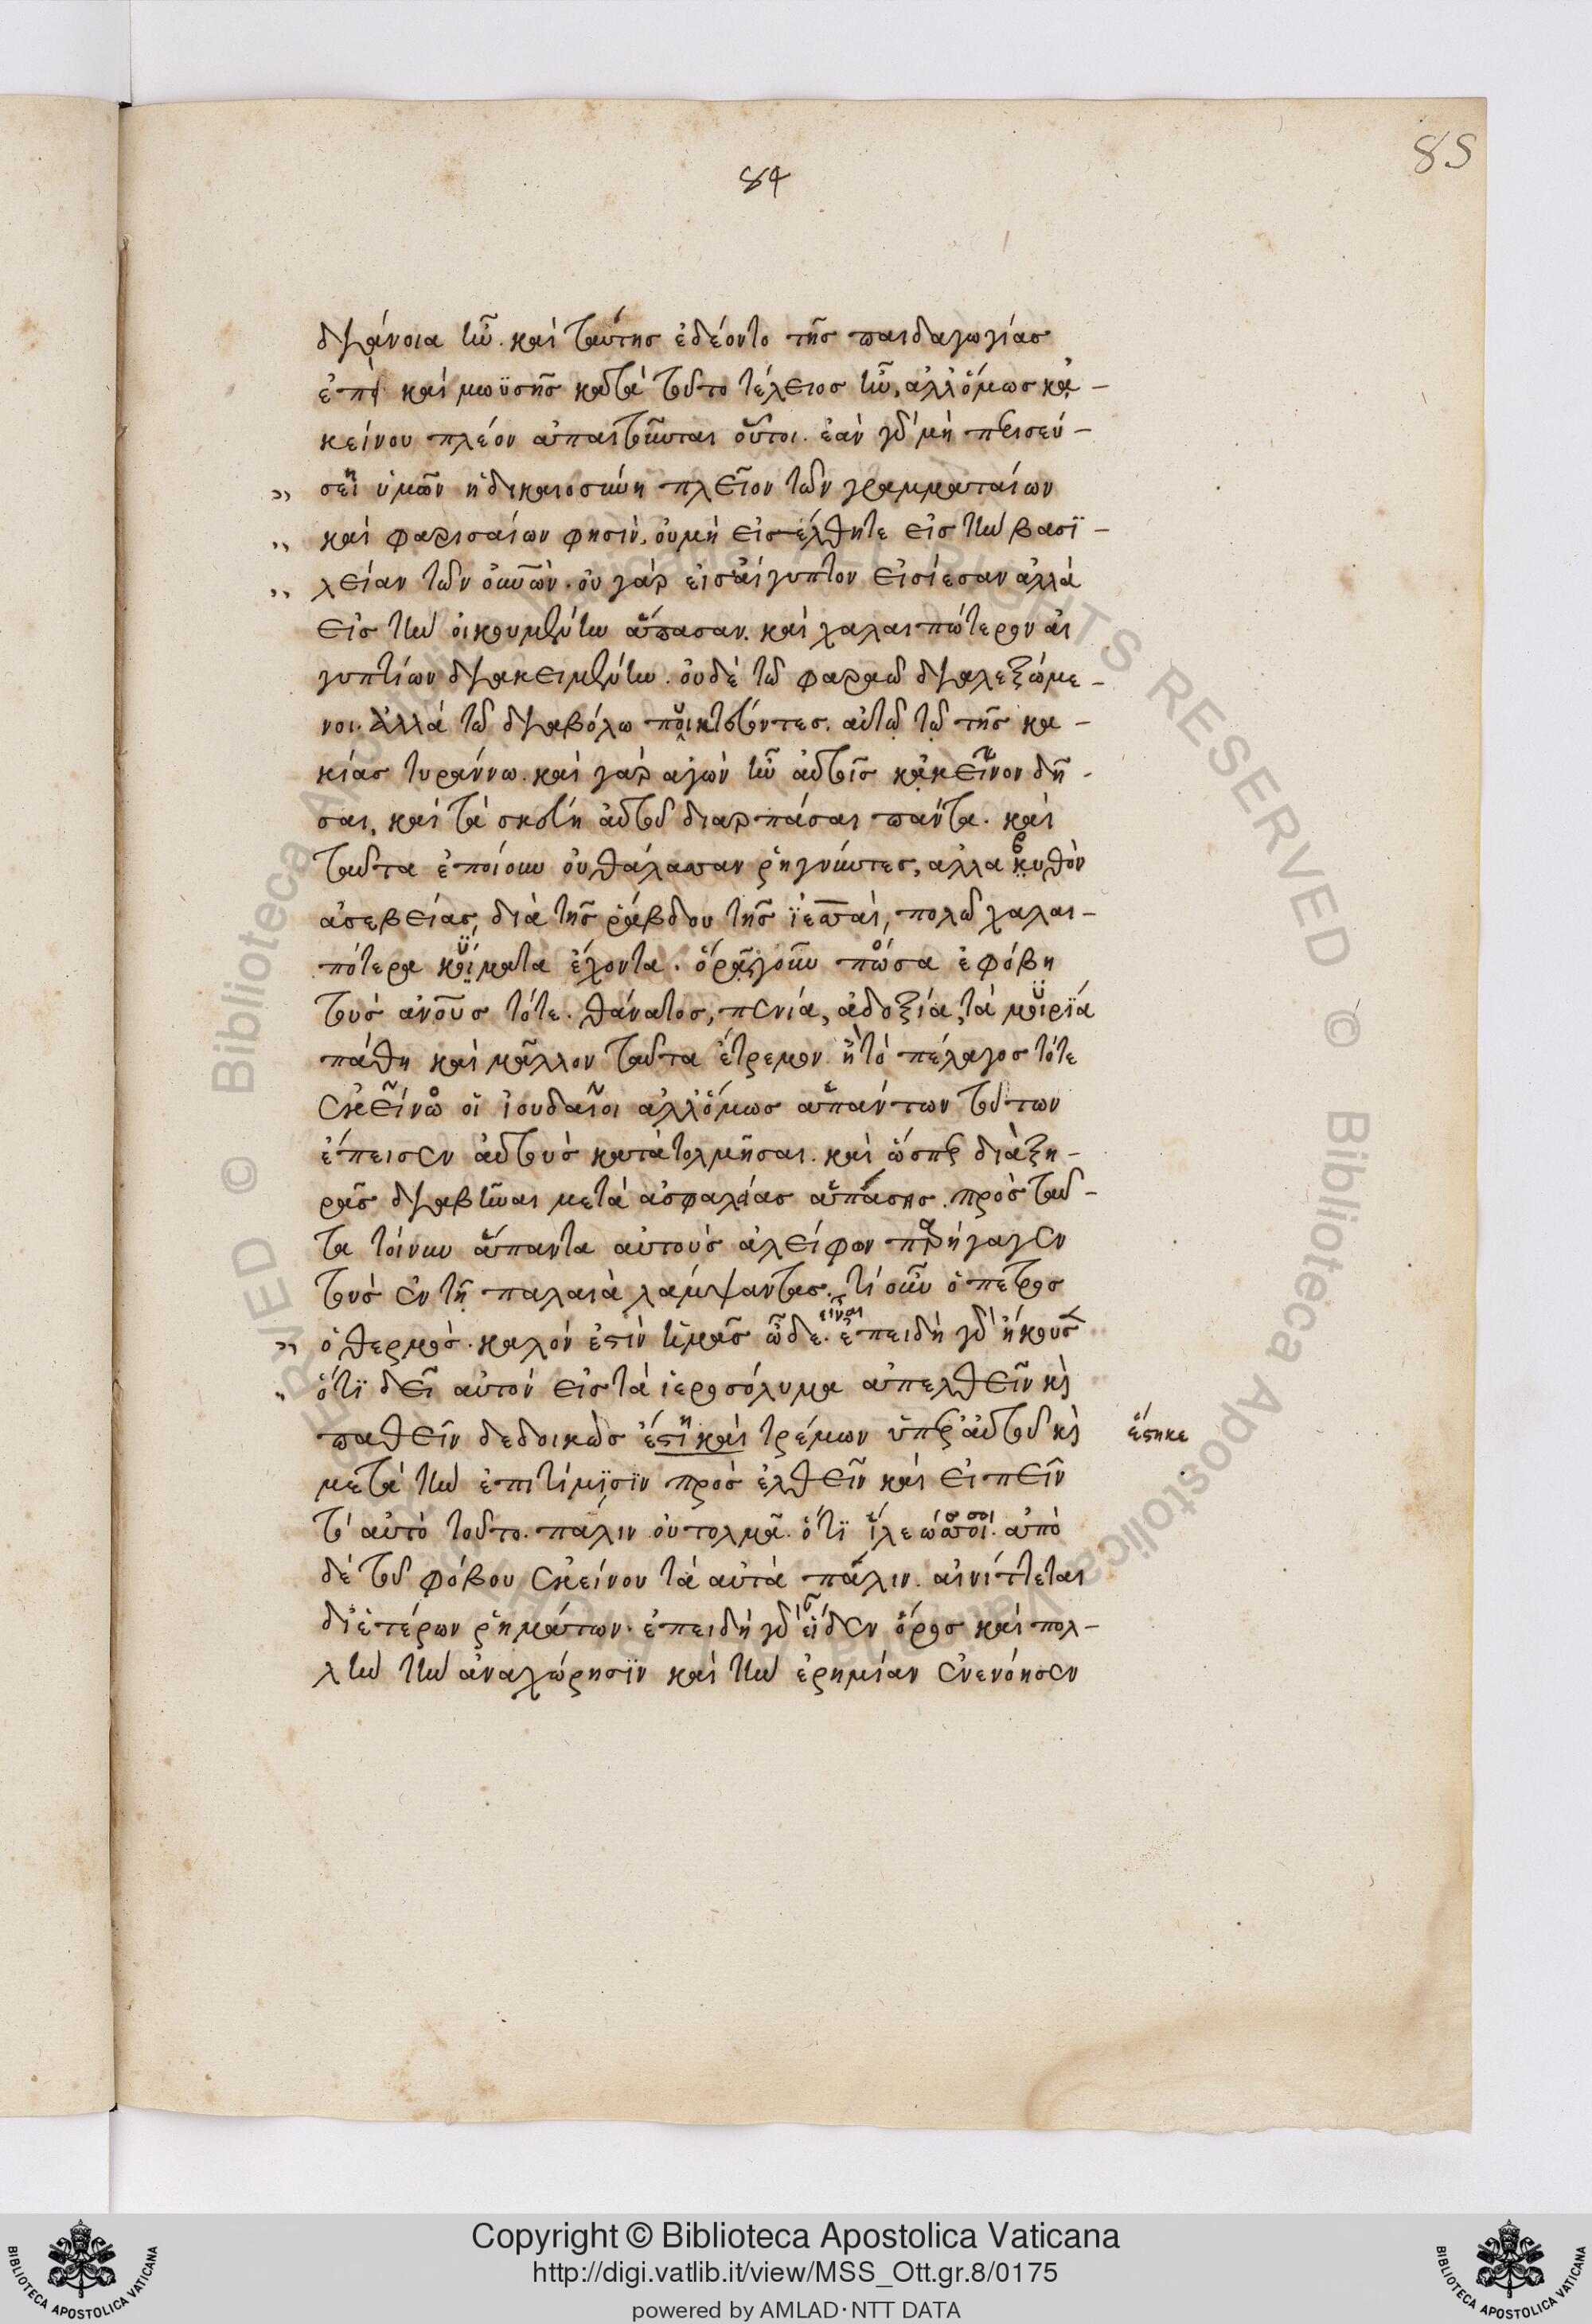 84
85
διάνοια ἦν. καὶ ταύτης ἐδέοντο τῆς παιδαγωγίας
ἐπεὶ καὶ μωϋσῆς κατὰ τοῦτο τέλειος ἦν, ἀλλ' ὅμως κἀ-
κείνου πλέον ἀπαιτοῦνται οὗτοι. ἐὰν γὰρ μὴ περισσεύ-
σει ὑμῶν ἡ δικαιοσύνη πλεῖον τῶν γραμματαίων
καὶ φαρισαίων φησὶν, οὐ μὴ εἰσέλθητε εἰς τὴν βασϊ-
λείαν τῶν οὐνῶν. οὐ γὰρ εἰς αἴγυπτον εἰσίεσαν ἀλλὰ
εἰς τὴν οἰκουμένην ἅπασαν. καὶ χαλαιπώτερον αἰ
γυπτίων διακειμένην. οὐδὲ τῶ φαραὼ διαλεξώμε-
νοι. ἀλλὰ τῶ διαβόλω πυκτεύοντες. αὐτῷ τῷ τῆς κα-
κίας τυράννω. καὶ γὰρ ἀγὼν ἦν αὐτοῖς κἀκεῖνον δῆ-
σαι, καὶ τὰ σκεύη αὐτοῦ διαρπάσαι πάντα. καὶ
ταῦτα ἐποίουν οὐ θάλασσαν ῥηγνύντες, ἀλλὰ βυθὸν
ἀσεβείας, διὰ τῆς ῥάβδου τῆς ϊεσσαὶ, πολὺ χαλαι-
πότερα κύματα ἔχοντα. ὅρα γοῦν πόσα ἐφόβη
τοὺς ἀνοῦς τότε. θάνατος, πενία, ἀδοξία, τὰ μυρϊα
πάθη καὶ μᾶλλον ταῦτα ἔτρεμον ἢ τὸ πέλαγος τότε
ἐκεῖνο οἱ ἰουδαῖοι ἀλλ' ὅμως ἁπάντων τούτων
ἔπεισεν αὐτοὺς κατατολμῆσαι. καὶ ὥσπερ διὰ ξη-
ρᾶς διαβῆναι μετὰ ἀσφαλείας ἁπάσης. πρὸς ταῦ-
τα τοίνυν ἅπαντα αὐτοὺς ἀλείφων παρήγαγεν
τοὺς ἐν τῇ παλαιᾶ λάμψαντας. τί οὖν ὁ πέτρος
ὁ θερμός. καλόν ἐστὶν ἡμᾶς ὧδε εἶναι. ἐπειδὴ γὰρ ἤκουσε
ὅτϊ δεῖ αὐτὸν εἰς τὰ ἱεροσόλυμα ἀπελθεῖν κὶ
παθεῖν δεδοικὼς ἔστη καὶ τρέμων ὑπὲρ αὐτοῦ κὶ ἕστηκε
μετὰ τὴν ἐπιτίμισϊν προσελθεῖν καὶ εἰπεῖν
τ' αὐτὸ τοῦτο. πάλιν οὐ τολμᾶ. ὅτϊ ἵλεώς σοι. ἀπὸ
δὲ τοῦ φόβου ἐκείνου τὰ αὐτὰ πάλιν. αἰνίττεται
δι' ἑτέρων ῥημάτων. ἐπειδὴ γὰρ εἶδεν ὄρος καὶ πολ-
λὴν τὴν ἀναχώρησϊν καὶ τὴν ἐρημίαν ἐνενόησεν
Copyright © Biblioteca Apostolica Vaticana
http://digi.vatlib.it/view/MSS_Ott.gr.8/0175
powered by AMLAD·NTT DATA